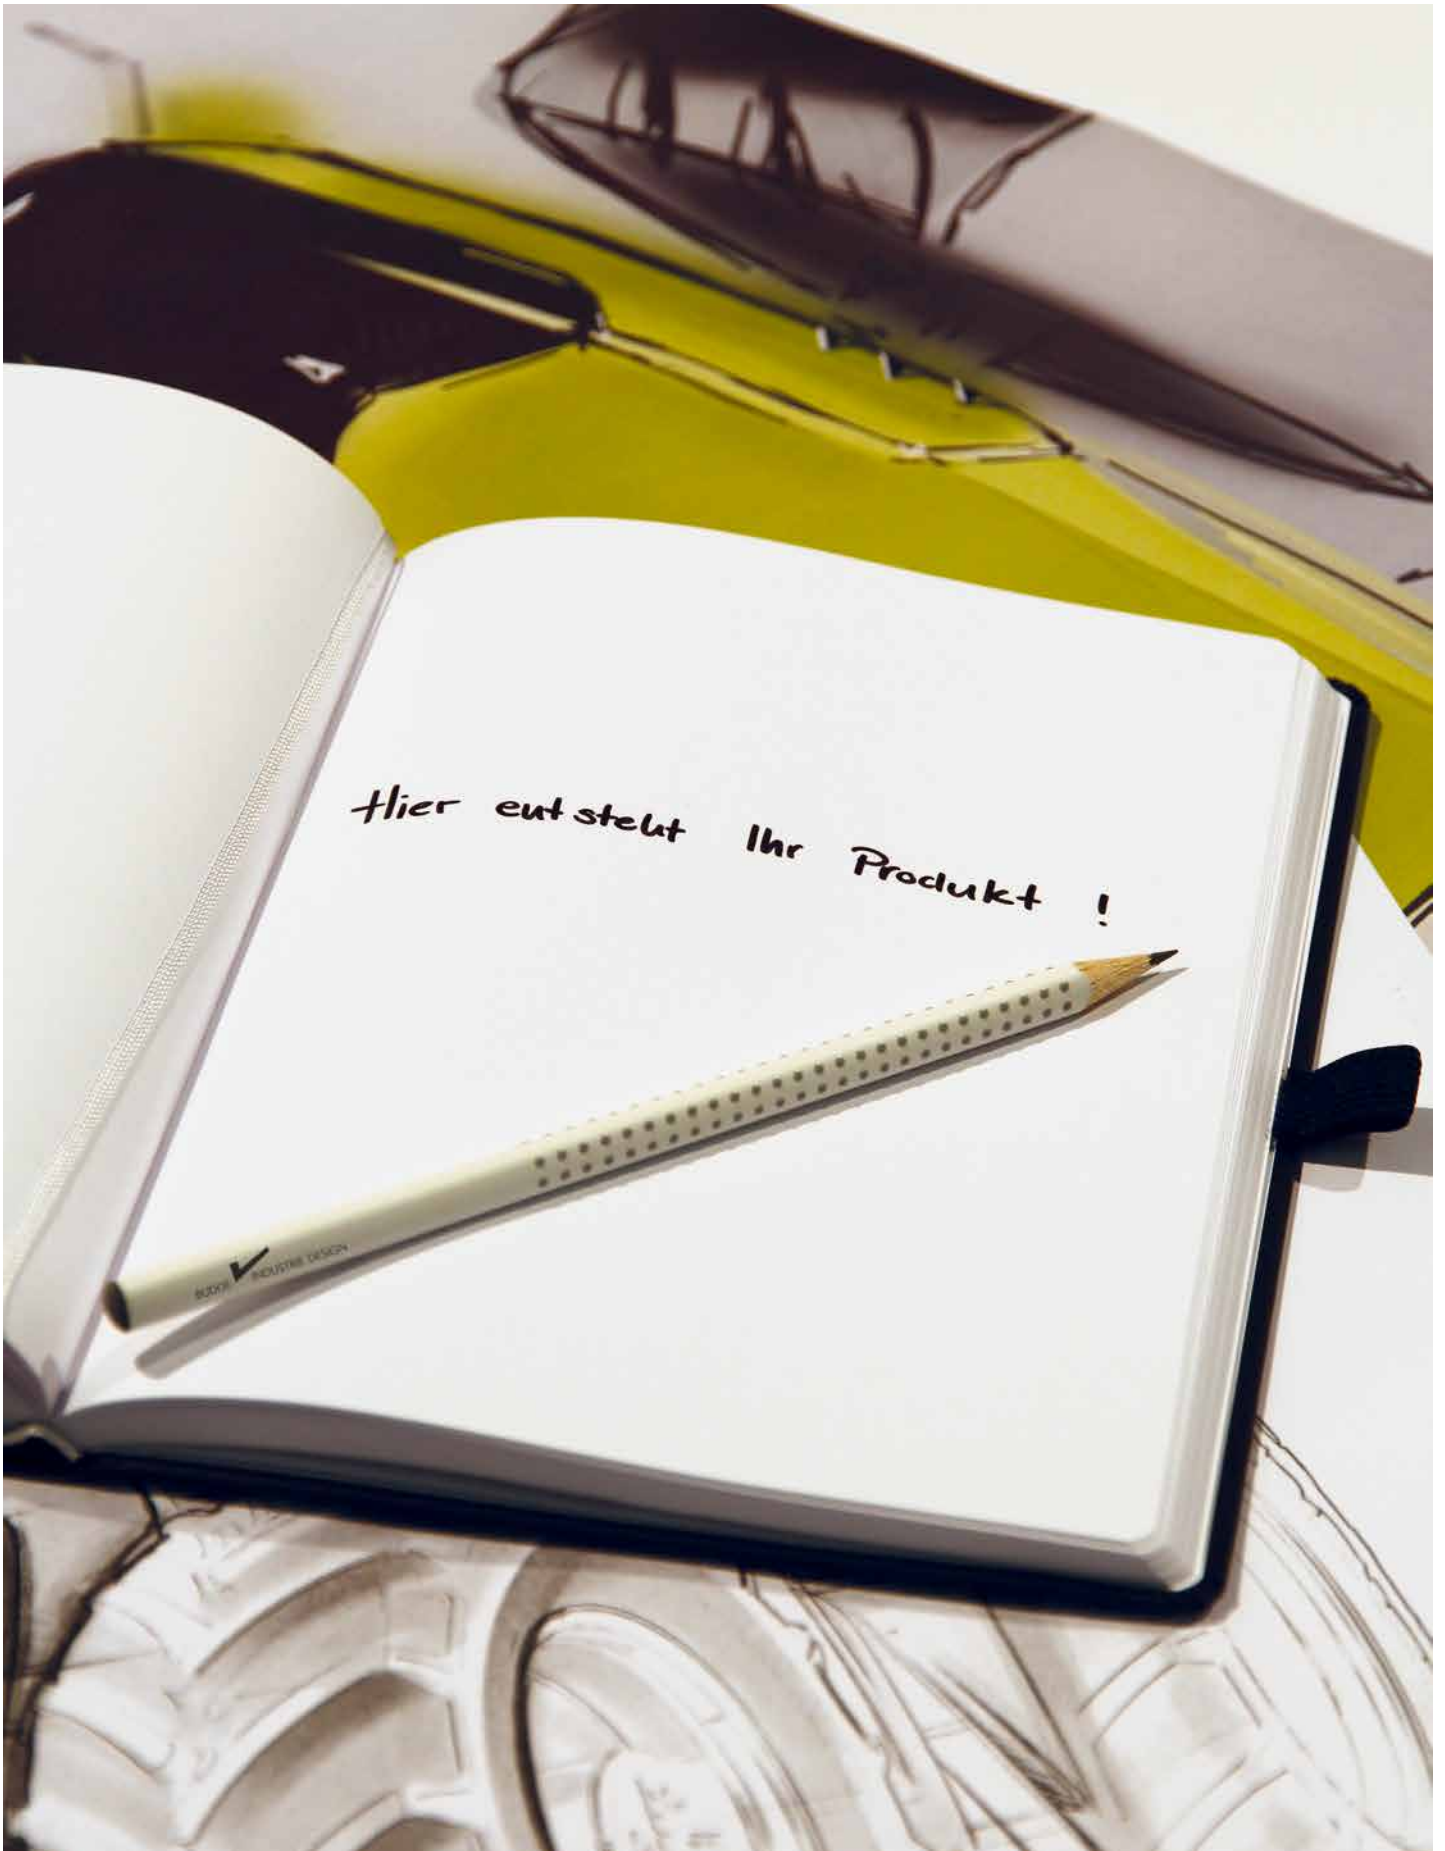 Hier entsteht Ihr Produkt !
BUDDE INDUSTRIE DESIGN